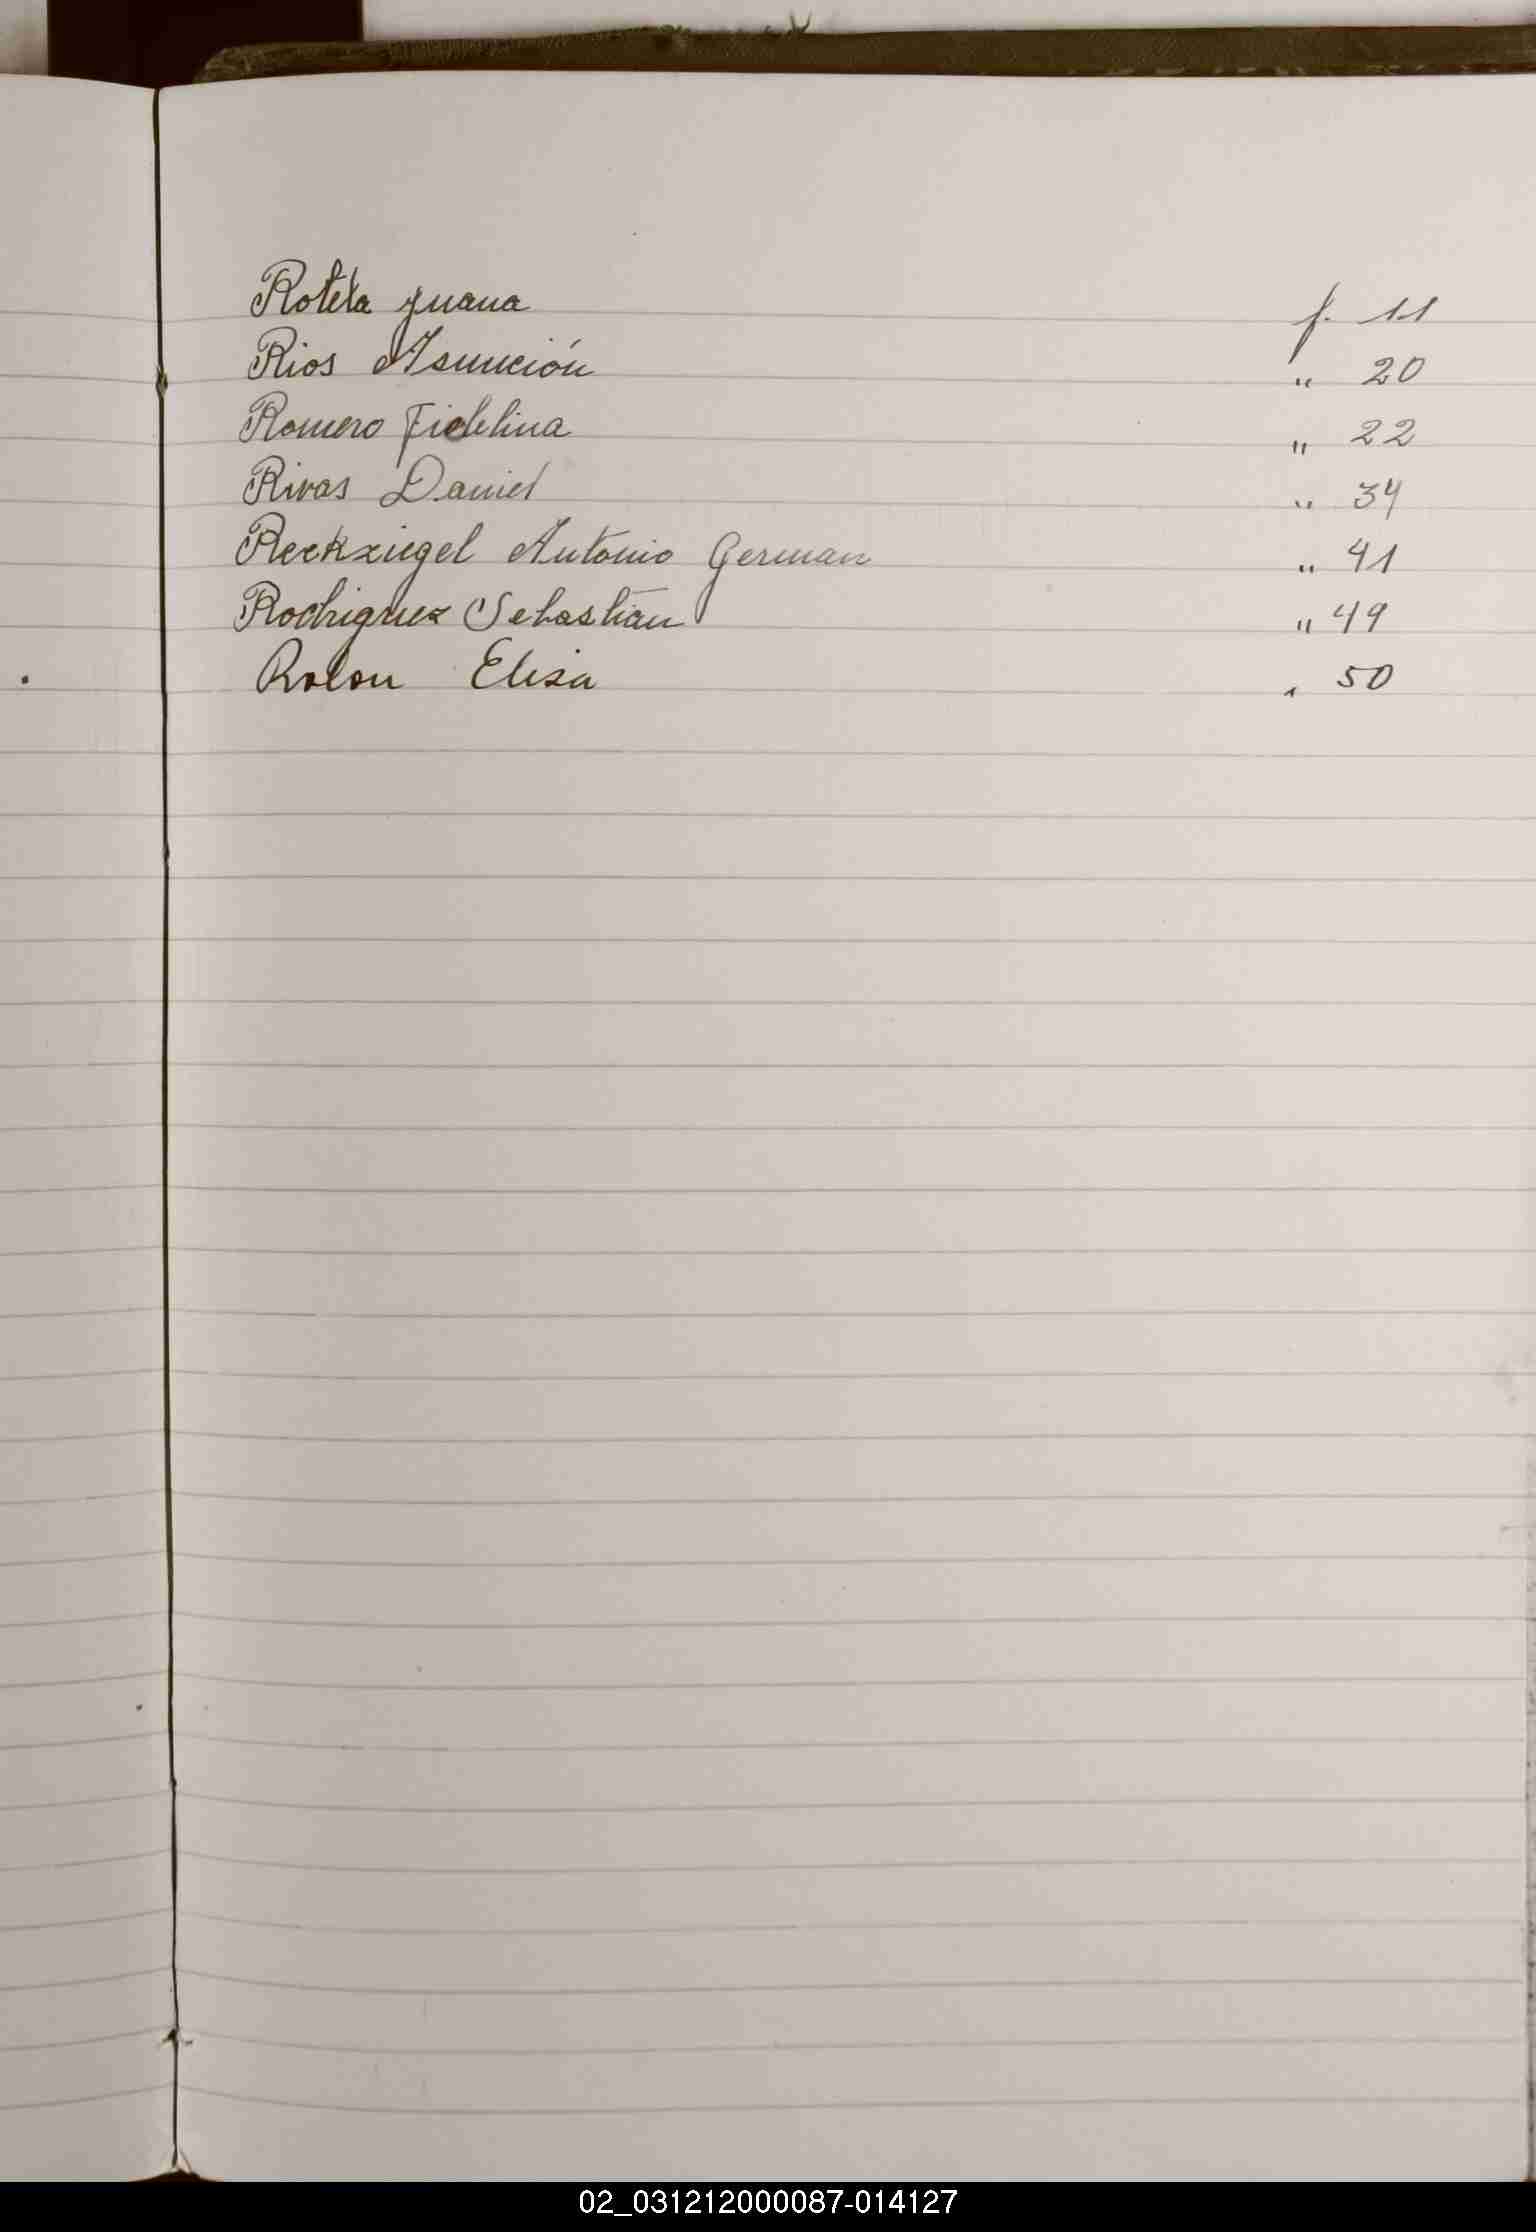 Rotela Juana f. 11
Rios Asunción " 20
Romero Fidelina " 22
Rivas Daniel " 34
Reckziegel Antonio German " 41
Rodriguez Sebastian " 49
Rolon Elisa " 50
02_031212000087-014127